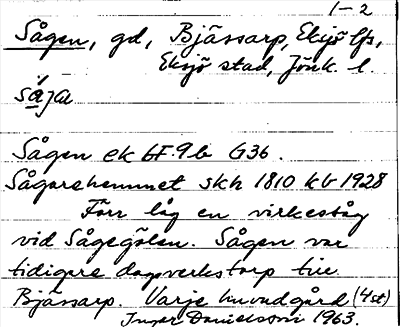 1-2
Sågen, gd, Bjässarp, Eksjö lfs,
Eksjö stad, Jönk. l.
Sågen ek bF. 9b G36.
Sågarehemmet skh 1810 kb 1928
Förr låg en virkessåg
vid Sågegölen. Sågen var
tidigare dagsverkstorp till
Bjässarp. Varje huvudgård (4 st)
Inger Danielsson 1963.